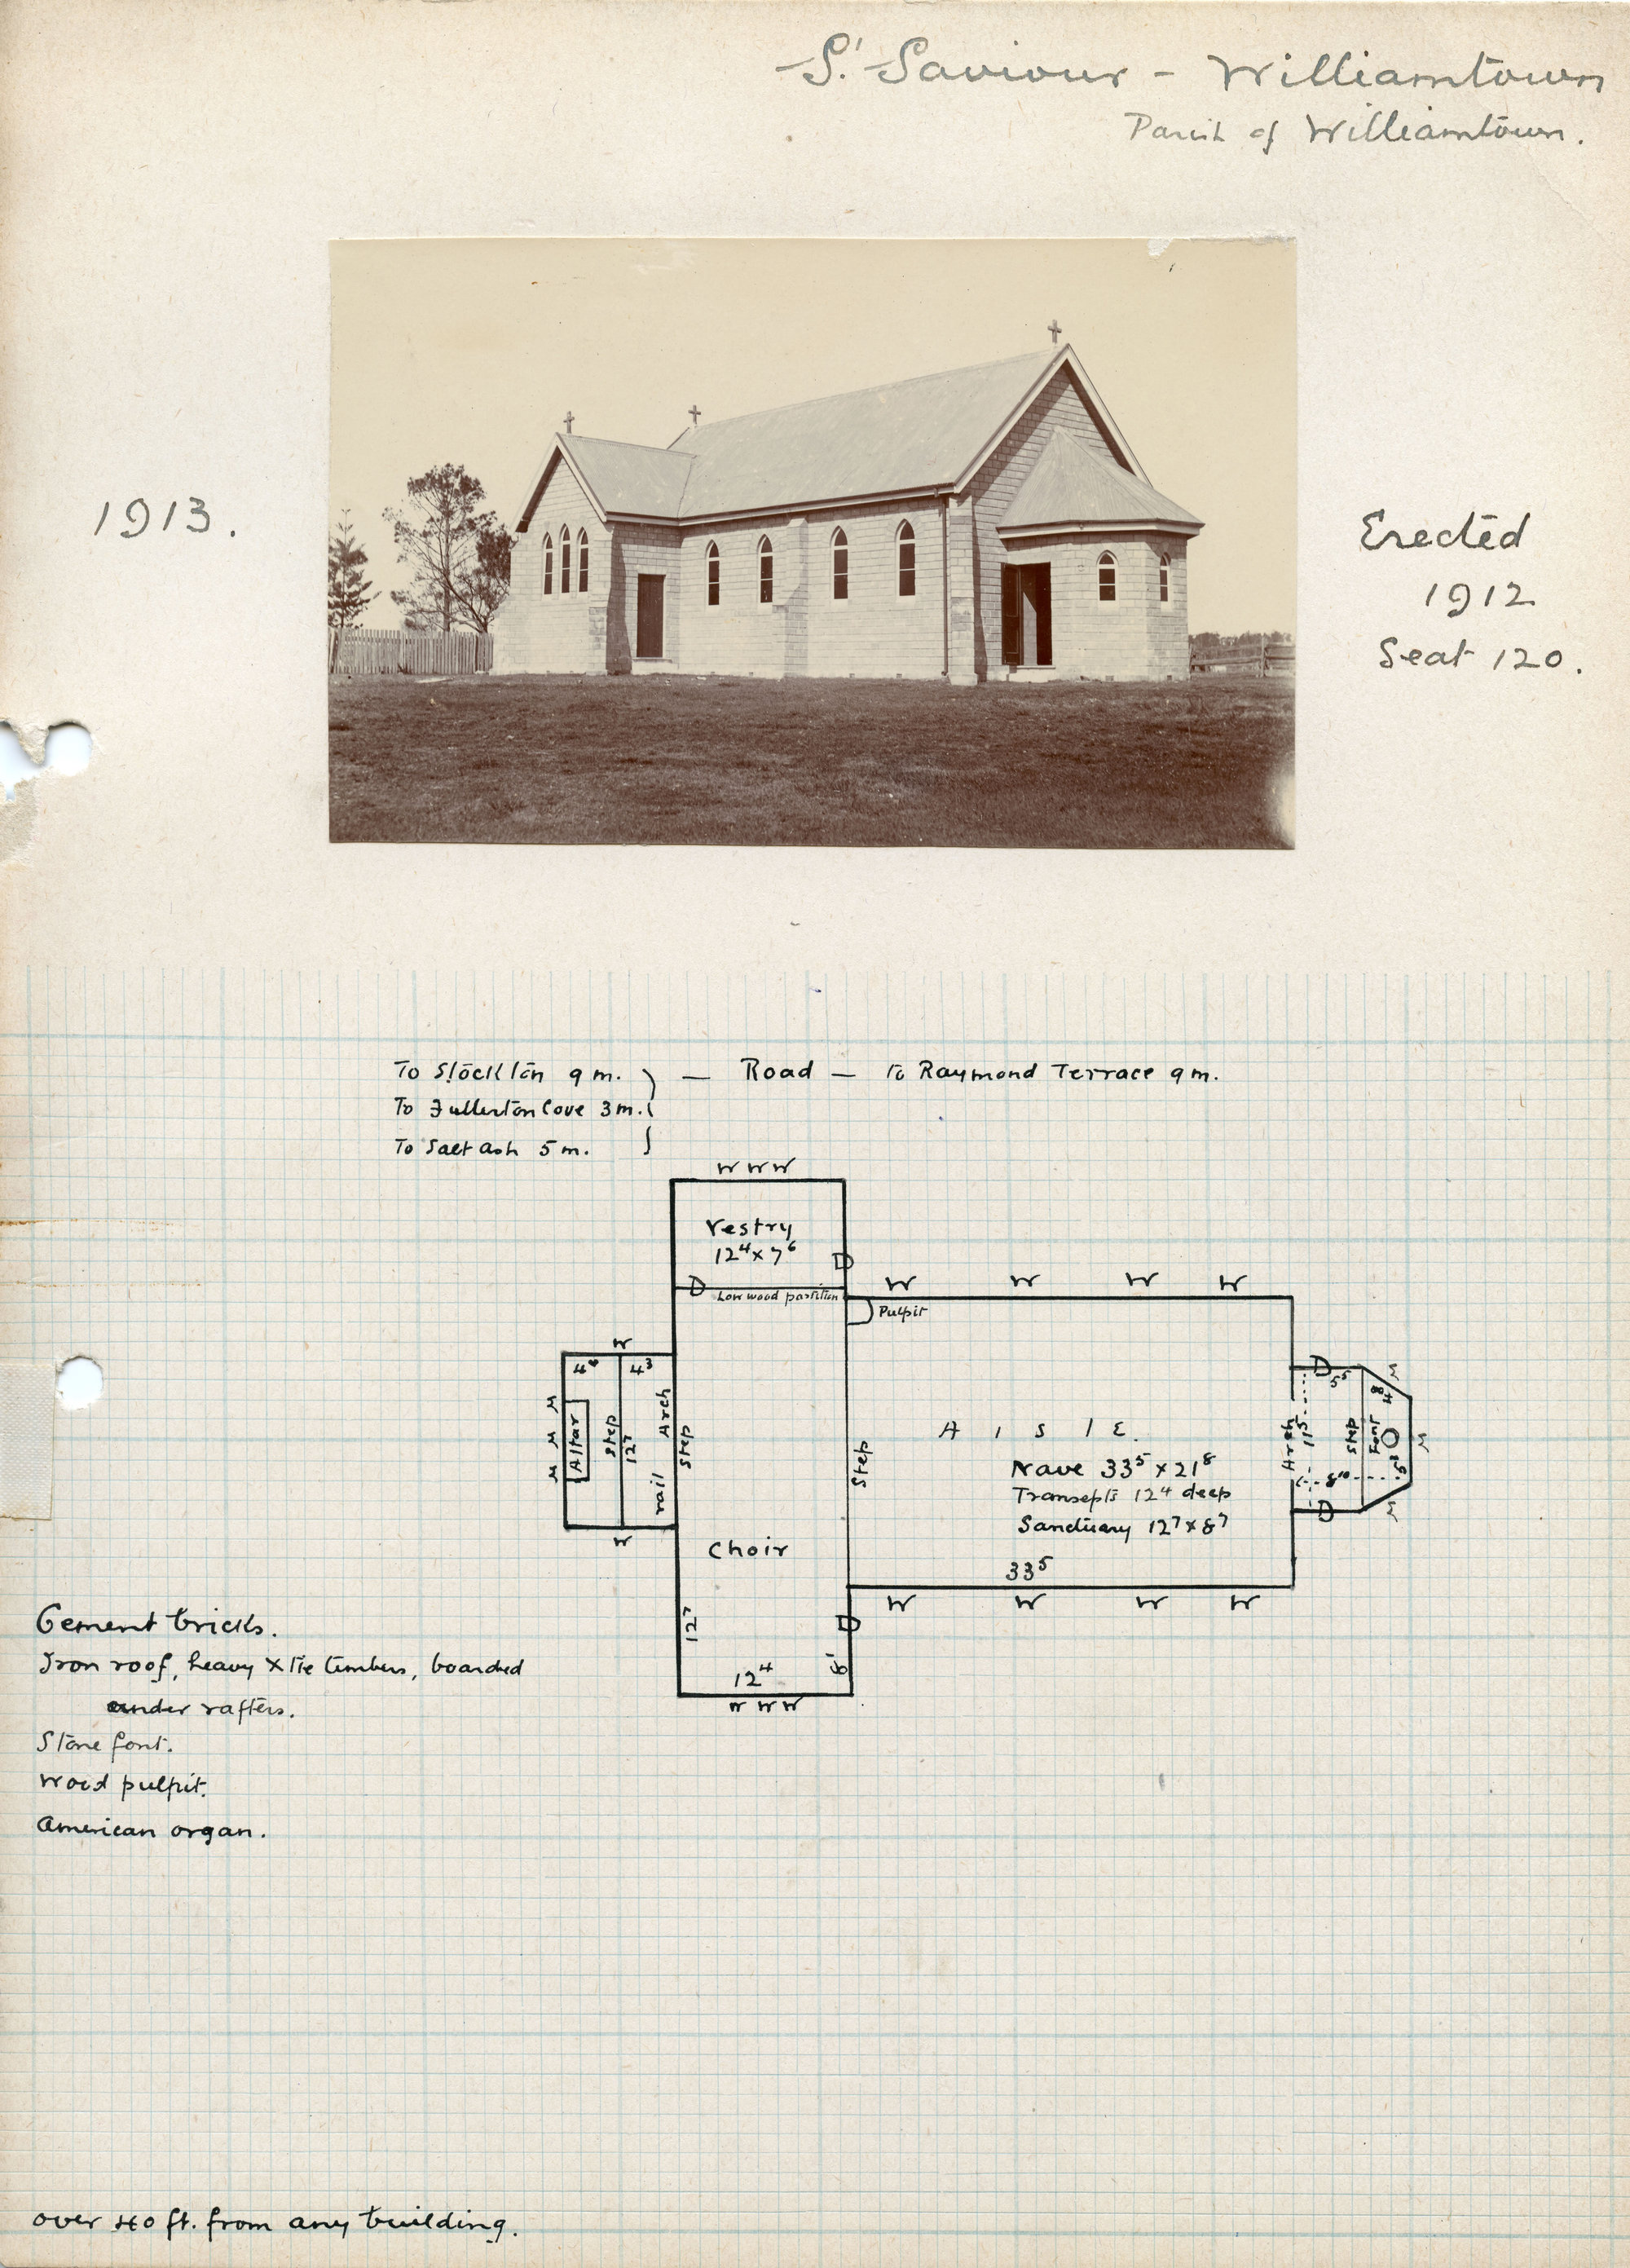 St Saviour - Williamtown
Parish of Williamtown.
1913.
Erected
1912
Seat 120.
To Stockton 9 m. } — Road — To Raymond Terrace 9 m.
To Fullerton Cove 3 m.
To Salt Ash 5 m.
W W W
Vestry
12⁴ x 7⁶
D
D
Low wood partition
W W W W
Pulpit
W
4⁴ 4³
W W W
Altar
Step
12⁷
rail
Arch
Step
W
Choir
12⁷
12⁴
8'
D
W W W
Step
A I S L E.
Nave 33⁵ x 21⁸
Transepts 12⁴ deep
Sanctuary 12⁷ x 8⁷
33⁵
W W W W
Arch
11⁵
D
5⁵
Step
Font
8¹⁰
D
W
W
W
Cement bricks.
Iron roof, heavy X tie timbers, boarded
under rafters.
Stone font.
Wood pulpit.
American organ.
over 40 ft. from any building.